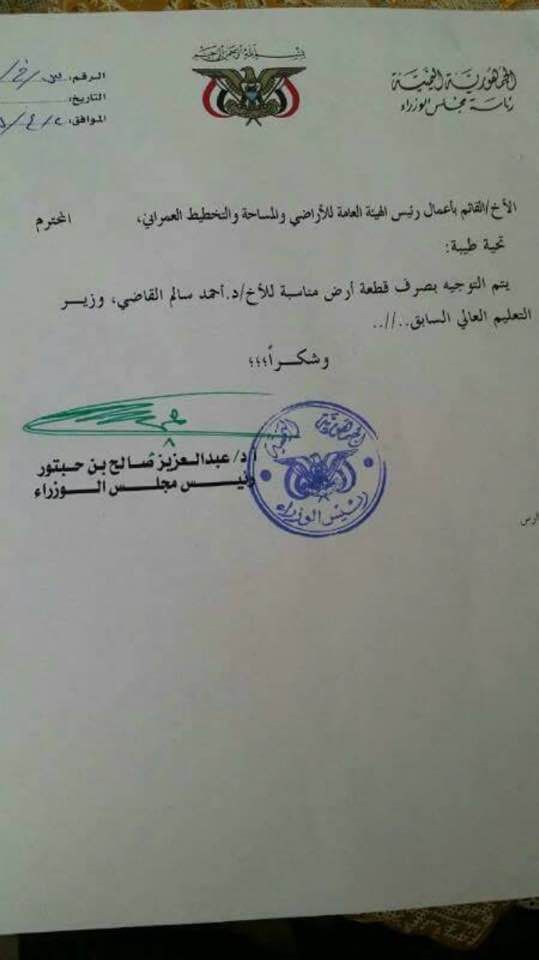 بسم الله الرحمن الرحيم
الجمهورية اليمنية
رئاسة مجلس الوزراء
الرقم:
التاريخ:
الموافق:
الأخ/القائم بأعمال رئيس الهيئة العامة للأراضي والمساحة والتخطيط العمراني، المحترم
تحية طيبة:
يتم التوجيه بصرف قطعة أرض مناسبة للأخ/د.أحمد سالم القاضي، وزير
التعليم العالي السابق..//..
وشكراً؛؛؛
أ د/ عبدالعزيز صالح بن حبتور
رئيس مجلس الوزراء
الجمهورية اليمنية
رئيس الوزراء